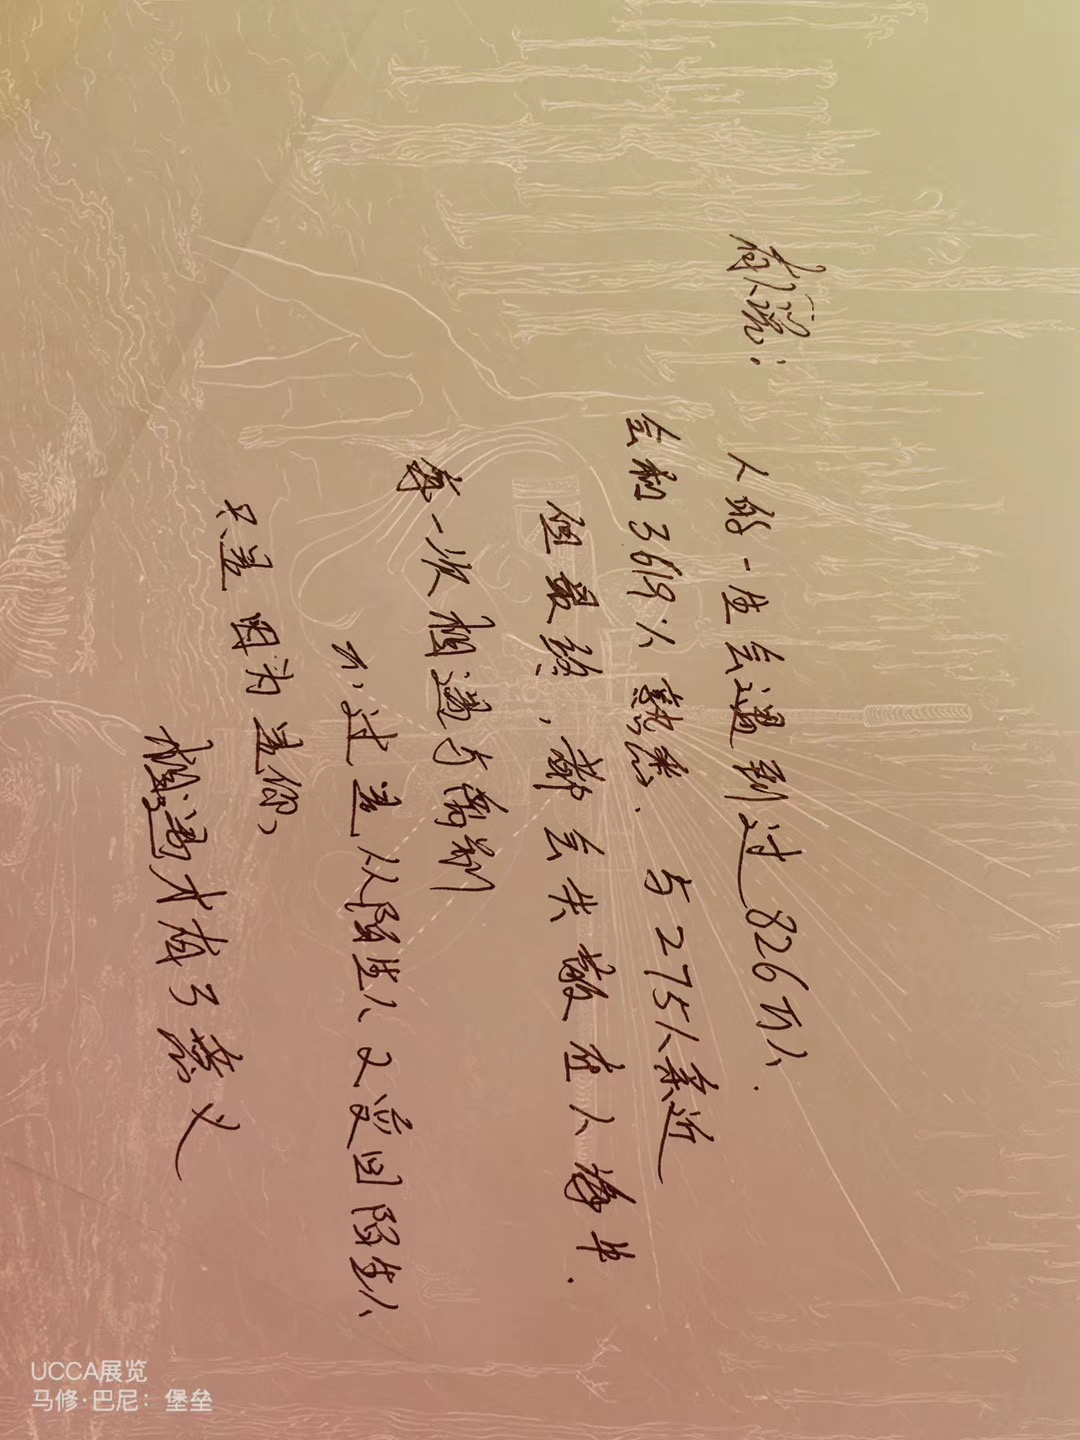 有人说：
人的一生会遇到过826万人.
会和3619人熟悉、与275人亲近
但最终，都会失散在人海中.
每一次相遇与离别
不过是从陌生人又变回陌生人
只是因为是你，
相遇才有了意义
UCCA展览
马修·巴尼：堡垒